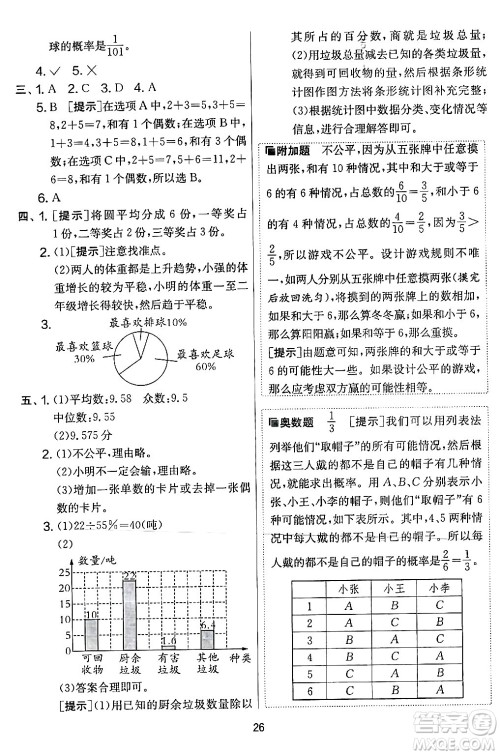 球的概率是1/101。
4. ✓ 5. ✕
三、1. C 2. A 3. C 4. D
5. B [提示]在选项A中,2+3=5,3+5=
8,2+5=7,和有1个偶数;在选项B中,
1+3=4,3+5=8,1+5=6,和有3个
偶数;在选项C中,1+2=3,2+4=6,
1+4=5,和有1个偶数,B选项中和有3
个偶数,所以选B。
6. A
四、1. [提示]将圆平均分成6份,一等奖占
1份,二等奖占2份,三等奖占3份。
2. (1)[提示]注意找准点。
(2)两人的体重都是上升趋势,小强的体
重增长比较平稳,小明的体重一年级至二
年级增长得较快,然后趋于平稳。
3.
最喜欢排球10%
最喜欢篮球
30%
最喜欢足球
60%
五、1. (1)平均数:9.58 众数:9.55
中位数:9.55
(2)9.575分
2. (1)不公平,理由略。
(2)小明不一定会输,理由略。
(3)增加一张单数的卡片或去掉一张双
数的卡片。
3. (1)22÷55%=40(吨)
(2)
数量/吨
25
20
15
10
5
0
10
22
1.6
6.4
可回收物
厨余垃圾
有害垃圾
其他垃圾
种类
(3)答案合理即可。
[提示](1)用已知的厨余垃圾数量除以
其所占的百分数,商就是垃圾总量。
(2)用垃圾总量减去已知的各类垃圾量,
就得到可回收物的量,然后根据条形统
计图作图方法将条形统计图补充完整;
(3)根据图中数据分类、变化情况等
信息,言之有理即可。
附加题 不公平,因为从五张牌中任意摸
出两张,和有10种情况,其中和大于或等于
6的有6种情况,占总数的6/10=3/5,和小于6
的有4种情况,占总数的4/10=2/5,3/5>
2/5,所以游戏不公平。设计游戏规则不唯
一,如两人分别从五张牌中任意摸两张(摸完
后放回洗匀),将摸出的两张牌上的数相加,如
果和大于6,算冬冬赢,和小于6,算阳阳
赢,如果和等于6,就重摸。
[提示]由题意可知,两张牌的和大于或等于
6的可能性大一些。如果设计公平的游戏,
那么应考虑对双方赢的可能性相等。
奥数题 1/3 [提示]我们可以用列表法
列举他们“取帽子”的所有可能情况,然后根
据这三人戴的都不是自己的帽子有几种情
况,求出概率。设A、B、C分别表示小
张、小王、小李的帽子,他们“取帽子”的可能
情况如下表所示。其中,4、5两种情况中
每人戴的都不是自己的帽子的概率是2/6=1/3。
小张 小王 小李
1 A B C
2 A C B
3 B A C
4 B C A
5 C A B
6 C B A
26